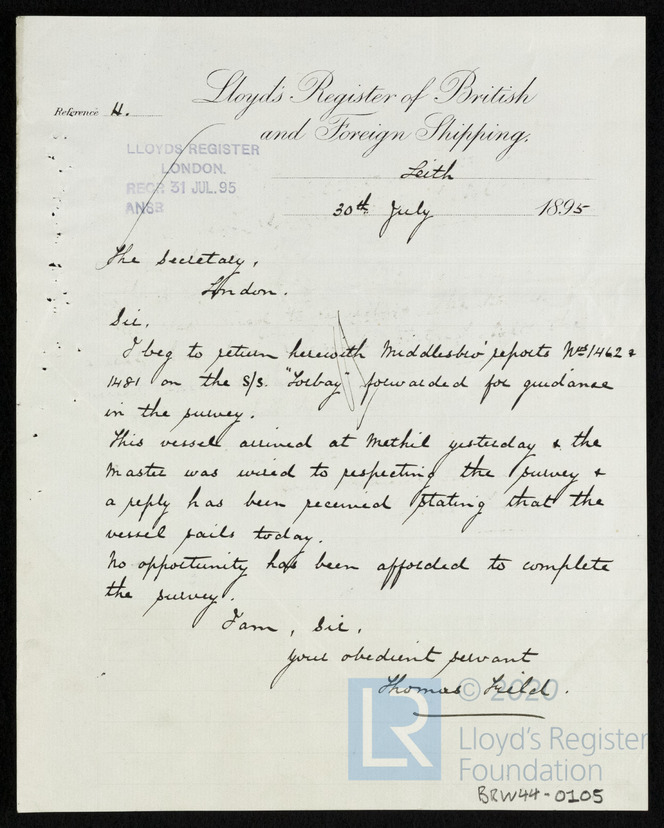 Lloyd's Register of British
and Foreign Shipping.
Reference H.
LLOYDS REGISTER
LONDON.
RECD 31 JUL.95
ANSD
Leith
30th July 1895
The Secretary,
London.
Sir,
I beg to return herewith Middlesbro' reports Nos 1462 &
1481 on the S/S. "Torbay" forwarded for guidance
in the survey.
This vessel arrived at Methil yesterday & the
Master was wired to respecting the survey &
a reply has been received stating that the
vessel sails today.
No opportunity has been afforded to complete
the survey.
I am, Sir,
your obedient servant
Thomas Field.
© 2020
LR
Lloyd's Register
Foundation
BRW44-0105